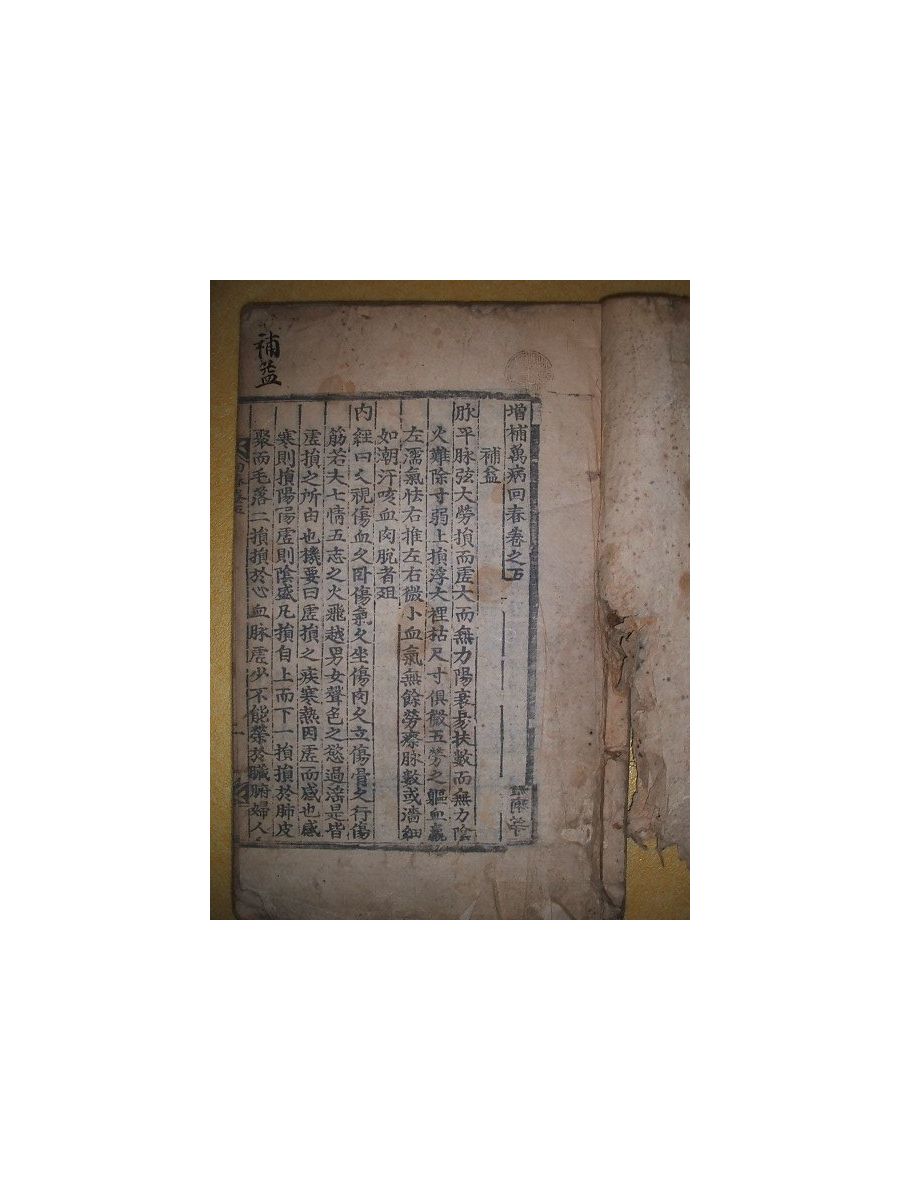 增補萬病回春卷之五
補益
脉平脉弦大勞損而虛大而無力陽衰易扶數而無力陰
火難除寸弱上損浮大裡枯尺寸俱微五勞之軀血羸
左濡氣怯右推左右微小血氣無餘勞瘵脉數或濇細
如潮汗咳血肉脫者殂
内經曰久視傷血久卧傷氣久坐傷肉久立傷骨久行傷
筋若夫七情五志之火飛越男女聲色之慾過淫是皆
虛損之所由也機要曰虛損之疾寒熱因虛而感也感
寒則損陽陽虛則陰盛凡損自上而下一損損於肺皮
聚而毛落二損損於心血脉虛少不能榮於臟腑婦人
補益